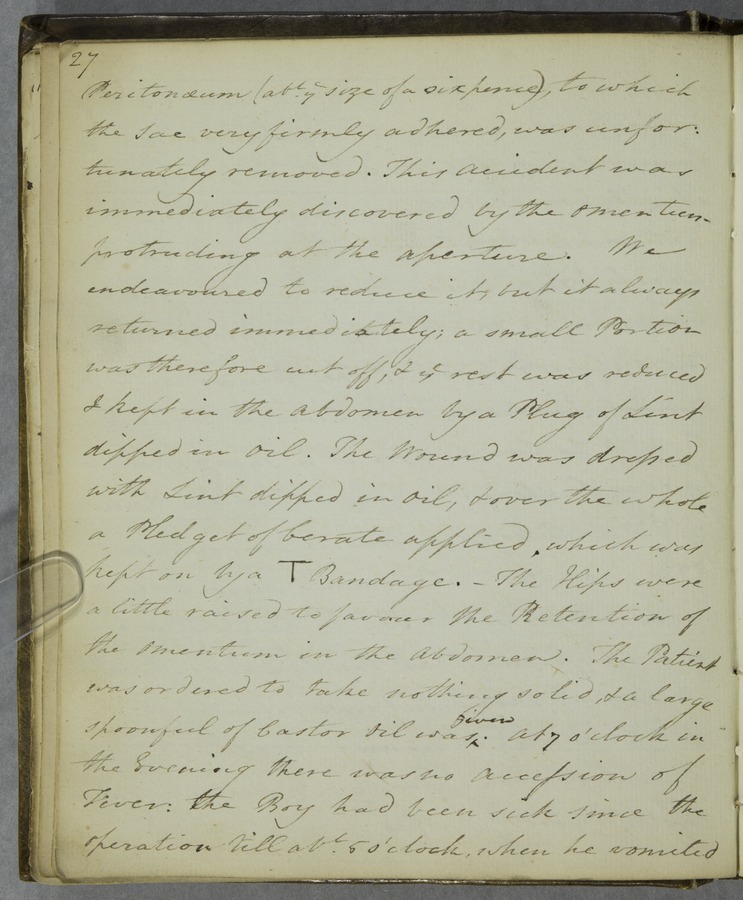 27
Peritonæum (abt. ye size of a sixpence), to which
the Sac very firmly adhered, was unfor:
tunately removed. This accident was
immediately discovered by the omentum
protruding at the aperture. We
endeavoured to reduce it, but it always
returned immediately; a small Portion
was therefore cut off, & ye rest was reduced
& kept in the Abdomen by a Plug of Lint
dipped in oil. The Wound was dressed
with Lint dipped in oil, & over the whole
a Pledget of Cerate applied, which was
kept on by a T Bandage. - The Hips were
a little raised to favour the Retention of
the omentum in the Abdomen. The Patient
was ordered to take nothing solid, & a large
spoonful of Castor Oil was given. At 7 o'clock in
the Evening there was no accession of
Fever: the Boy had been sick since the
operation till abt. 5 o'clock, when he vomited